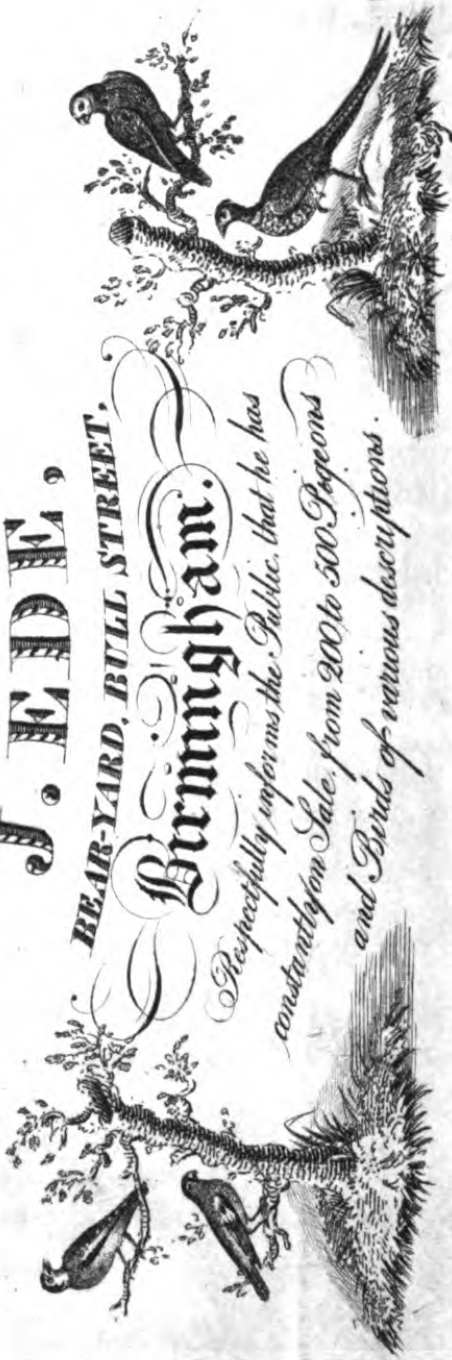 J. EDE.
BEAR-YARD, BULL STREET,
Birmingham.
Respectfully informs the Public, that he has
constantly on Sale, from 200 to 500 Pigeons
and Birds of various descriptions.